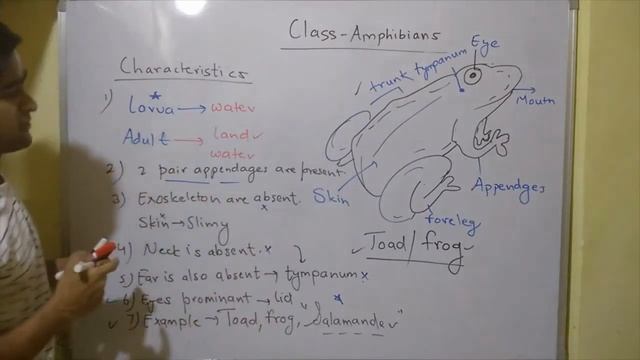 Class-Amphibians
Characteristics
1) Larva → water
Adult → land
water
2) 2 pair appendages are present
3) Exoskeleton are absent.
Skin → Slimy
4) Neck is absent.
5) Ear is also absent → tympanum
6) Eyes prominent → lid
7) Example → Toad, frog, Salamander
trunk
tympanum
Eye
Mouth
Skin
Appendges
foreleg
Toad/frog